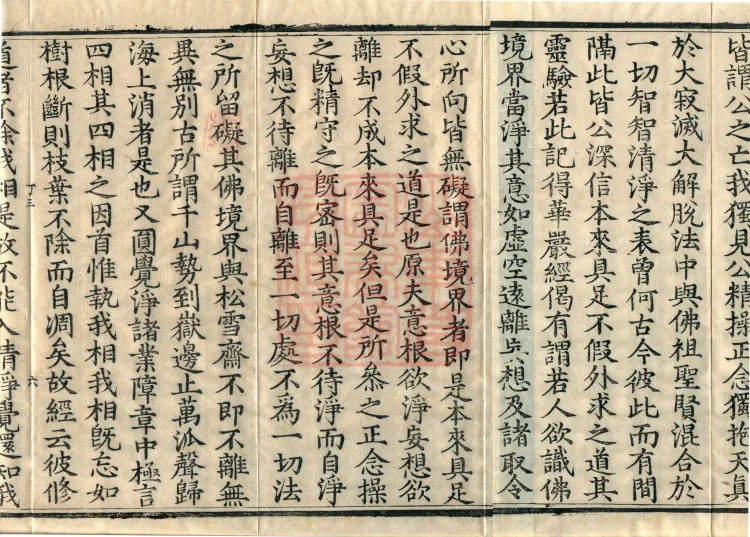 皆謂公之亡我獨見公精操正念獨抱天真
於大寂滅大解脫法中與佛祖聖賢混合於
一切智智清淨之表曾何古今彼此而有間
隔此皆公深信本來具足不假外求之道其
靈驗若此記得華嚴經偈有謂若人欲識佛
境界當淨其意如虛空遠離妄想及諸取令
心所向皆無礙謂佛境界者即是本來具足
不假外求之道是也原夫意根欲淨妄想欲
離却不成本來具足矣但是所叅之正念操
之旣精守之旣密則其意根不待淨而自淨
妄想不待離而自離至一切處不爲一切法
之所留礙其佛境界與松雪齋不即不離無
異無別古所謂千山勢到嶽邊止萬派聲歸
海上消者是也又圓覺淨諸業障章中極言
四相其四相之因首惟執我相我相旣忘如
樹根斷則枝葉不除而自凋矣故經云彼修
丁三 六
道者不除我相是故不能入清淨覺還知我